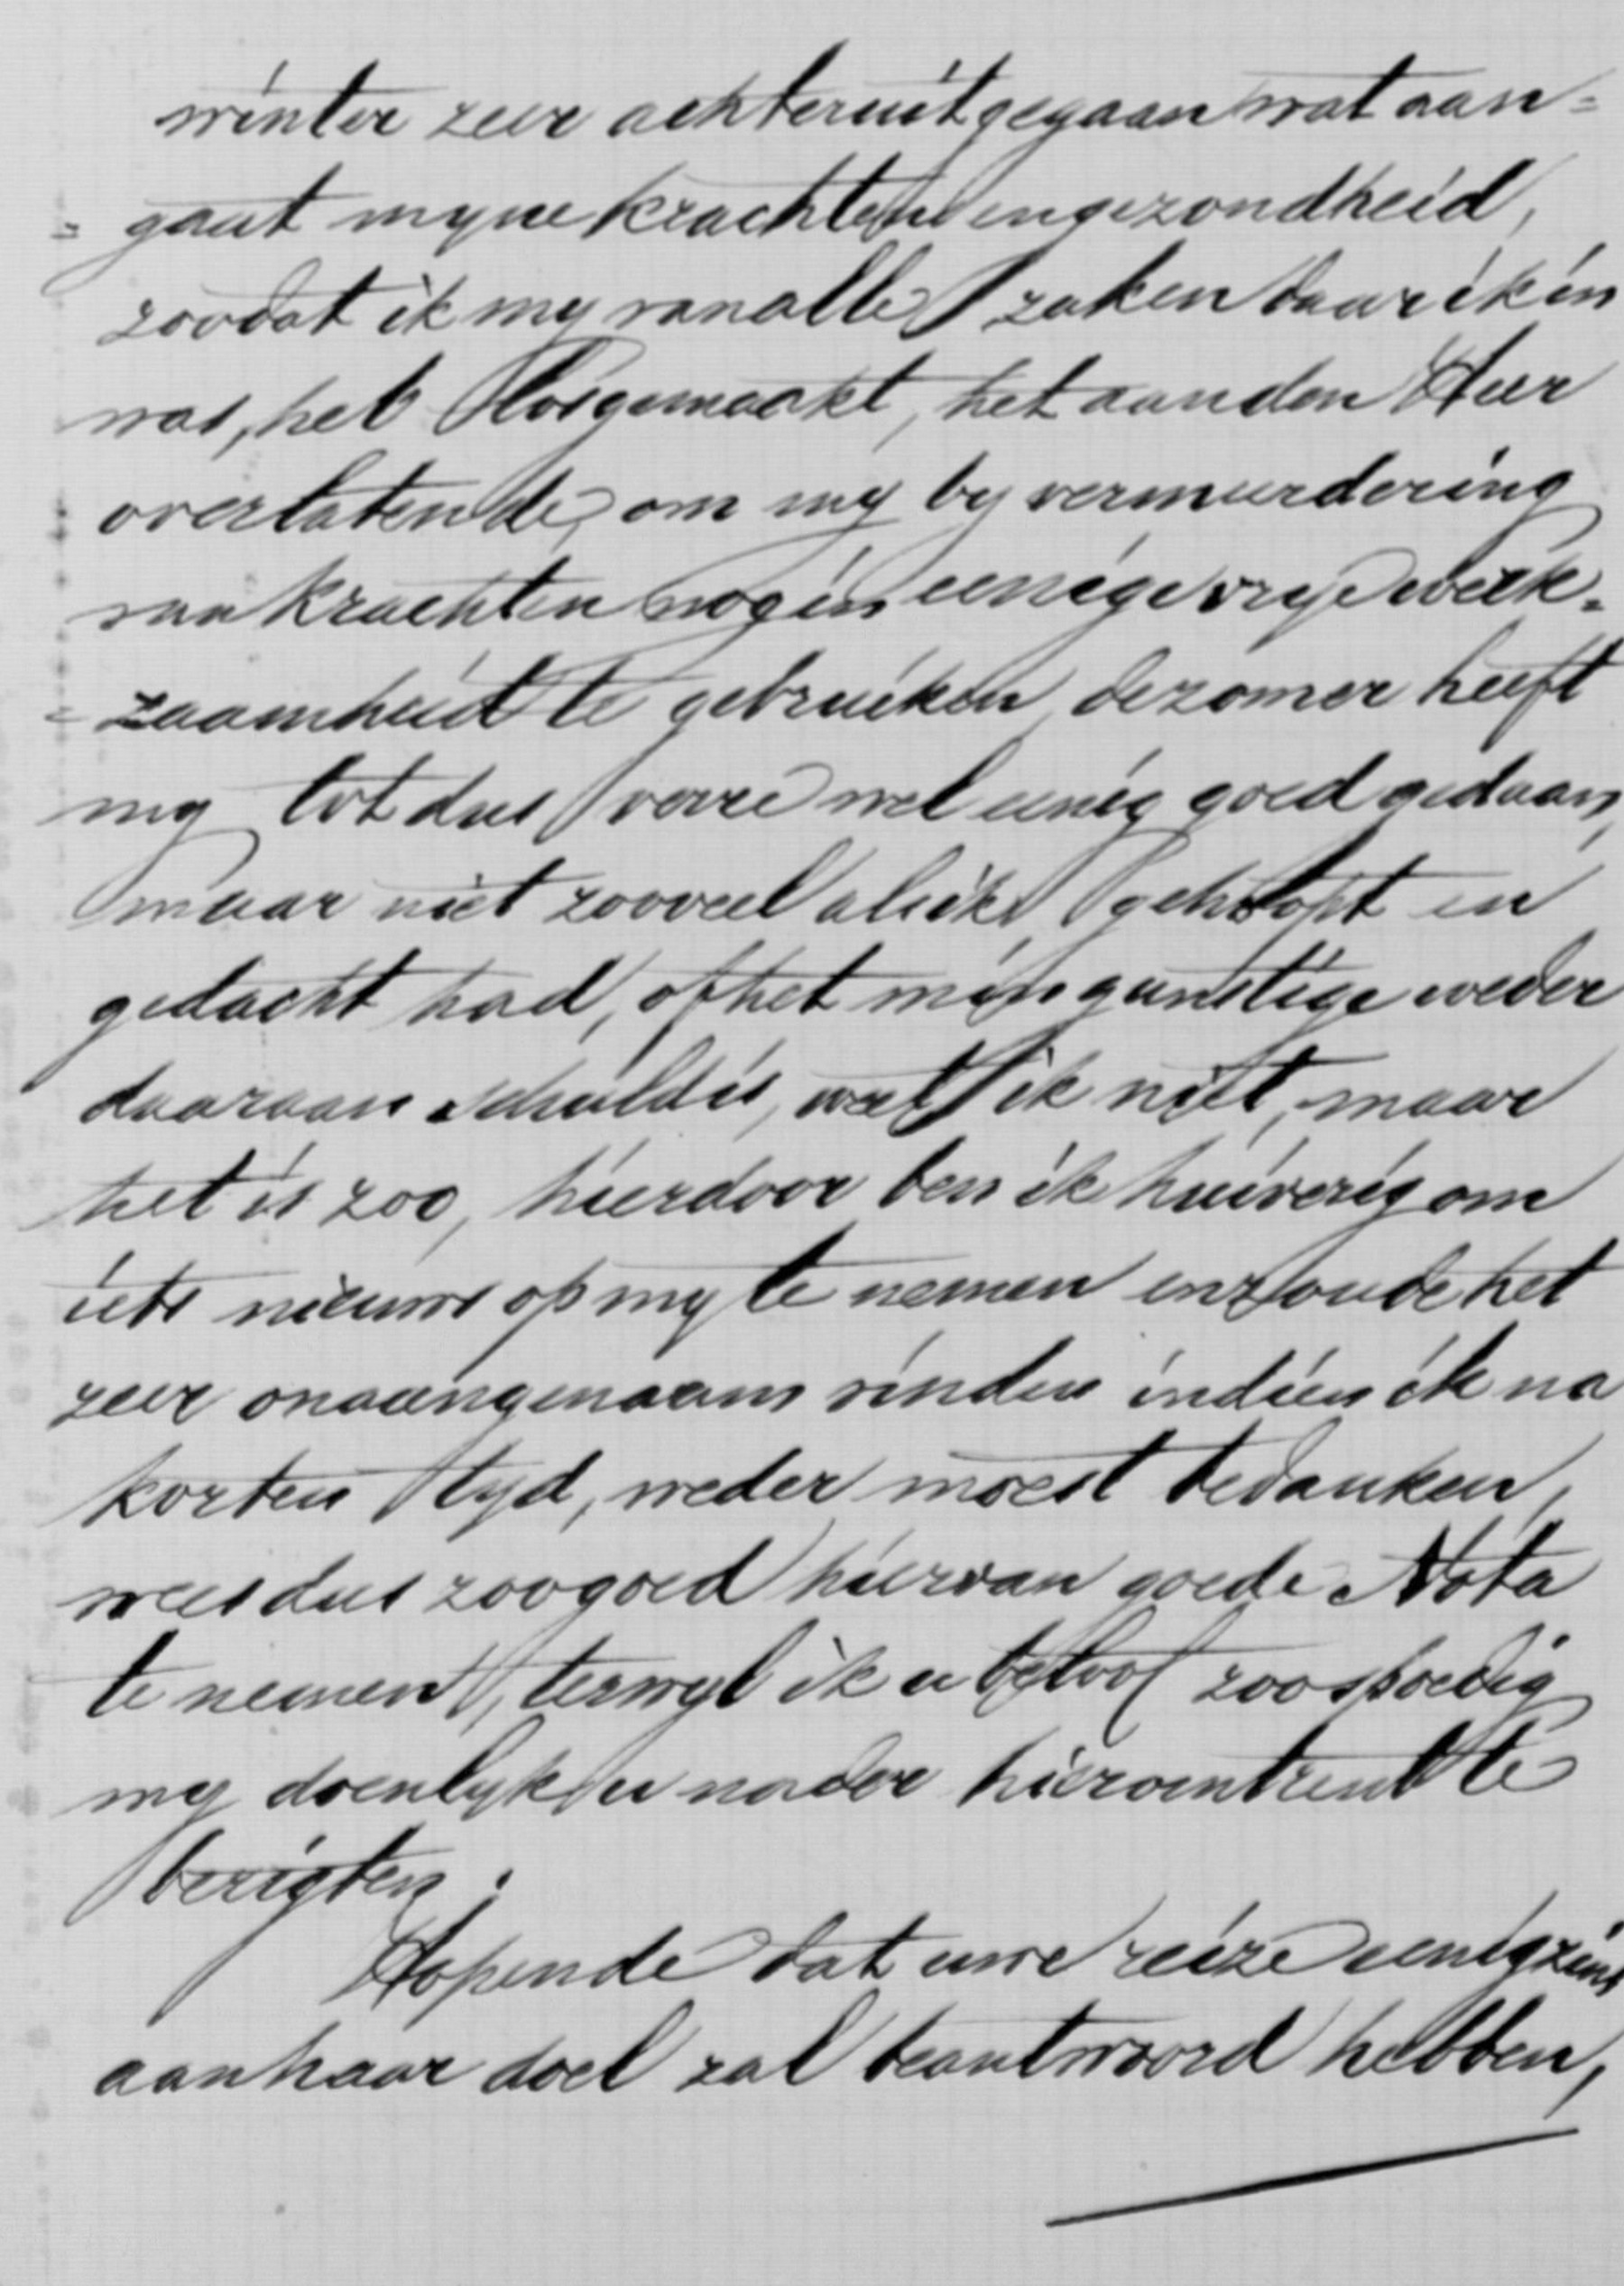 winter zeer achteruitgegaan wat aan=
= gaat myne krachten en gezondheid,
zoodat ik my van alle zaken daar ik in
was, heb losgemaakt, het aan den Heer
overlatende, om my by vermeerdering
van krachten nog in eenige vrye werk=
= zaamheid te gebruiken, de zomer heeft
my tot dus verre wel eenig goed gedaan,
maar niet zooveel als ik gehoopt en
gedacht had, of het min gunstige weder
daaraan schuld is, weet ik niet, maar
het is zoo, hierdoor ben ik huiverig om
iets nieuws op my te nemen en zoude het
zeer onaangenaam vinden indien ik na
korten tyd, weder moest bedanken,
wees dus zoo goed hiervan goede Nota
te nemen, terwyl ik u beloof zoo spoedig
my doenlyk u nader hieromtrent te
berigten.
Hopende dat uwe reize eenigzins
aan haar doel zal beantwoord hebben,